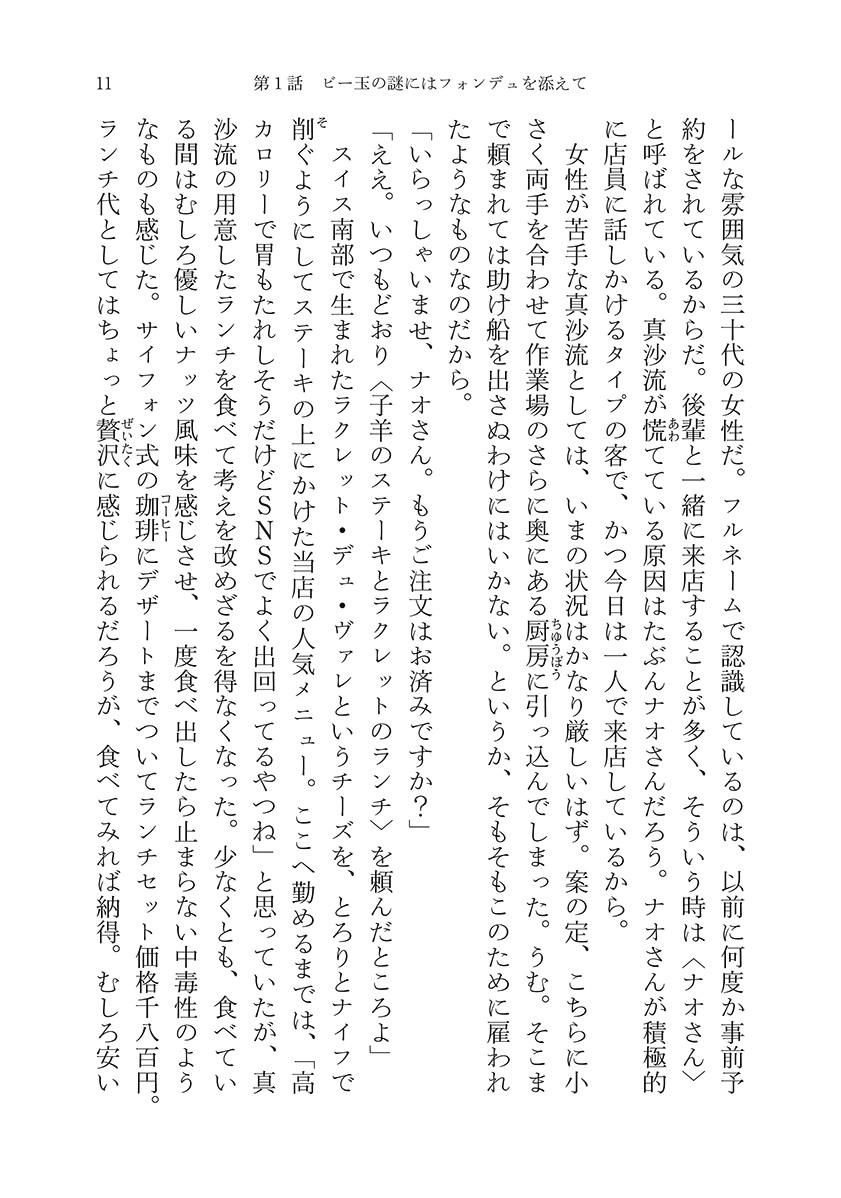 11
第１話　ビー玉の謎にはフォンデュを添えて
ールな雰囲気の三十代の女性だ。フルネームで認識しているのは、以前に何度か事前予
約をされているからだ。後輩と一緒に来店することが多く、そういう時は〈ナオさん〉
と呼ばれている。真沙流が慌てている原因はたぶんナオさんだろう。ナオさんが積極的
あわ
に店員に話しかけるタイプの客で、かつ今日は一人で来店しているから。
　女性が苦手な真沙流としては、いまの状況はかなり厳しいはず。案の定、こちらに小
さく両手を合わせて作業場のさらに奥にある厨房に引っ込んでしまった。うむ。そこま
ちゆうぼう
で頼まれては助け船を出さぬわけにはいかない。というか、そもそもこのために雇われ
たようなものなのだから。
「いらっしゃいませ、ナオさん。もうご注文はお済みですか？」
「ええ。いつもどおり〈子羊のステーキとラクレットのランチ〉を頼んだところよ」
　スイス南部で生まれたラクレット・デュ・ヴァレというチーズを、とろりとナイフで
削ぐようにしてステーキの上にかけた当店の人気メニュー。ここへ勤めるまでは、「高
そ
カロリーで胃もたれしそうだけどＳＮＳでよく出回ってるやつね」と思っていたが、真
沙流の用意したランチを食べて考えを改めざるを得なくなった。少なくとも、食べてい
る間はむしろ優しいナッツ風味を感じさせ、一度食べ出したら止まらない中毒性のよう
なものも感じた。サイフォン式の珈琲にデザートまでついてランチセット価格千八百円。
コーヒー
ランチ代としてはちょっと贅沢に感じられるだろうが、食べてみれば納得。むしろ安い
ぜいたく